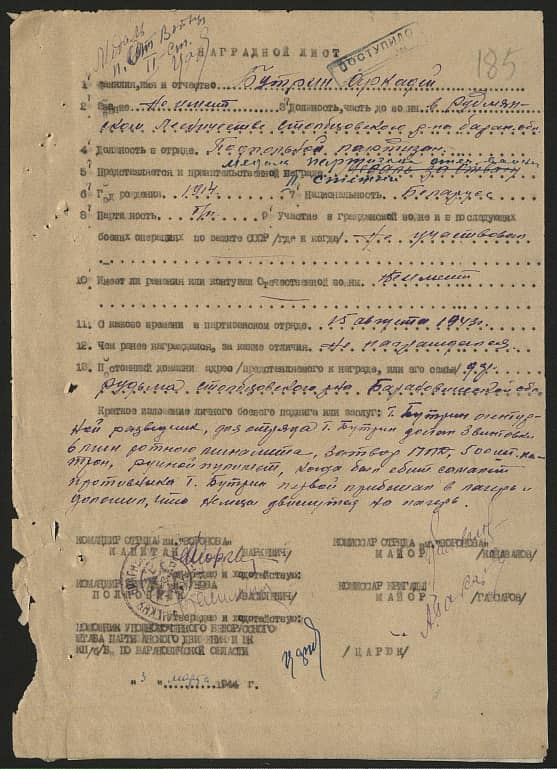 Медаль
п. От Войны
II ст.
185
ПОСТУПИЛО
НАГРАДНОЙ ЛИСТ
1 Фамилия, имя и отчество Бутрин Аркадий
2 Звание не имеет 3 Должность, часть до войны в Рудмян-
ском Лесничестве Столбцовского р-на Баран. обл.
4 Должность в отряде. партизан
5 Представляется к правительственной награде Медаль
медали партизан отеч. войны
II степени
6 Год рождения. 1914 7 Национальность. Беларус
8 Партийность. б/п 9 Участие в гражданской войне и в последующих
боевых операциях по защите СССР /где и когда/ Не участвовал
10 Имеет ли ранения или контузии Отечественной войны. Не имеет
11 С какого времени в партизанском отряде. 15 августа 1943 г.
12. Чем ранее награждался, за какие отличия. Не награждался
13. Постоянный домашний адрес /представляемого к награде, или его семьи/ д.
Рудьма Столбцовского р-на Барановичской обл.
Краткое изложение личного боевого подвига или заслуг: т. Бутрин агентур-
ной разведчик, для отряда т. Бутрин достал 3 винтовки
затвор ППД, 500 шт. па-
трон, ручной пулемет, когда был сбит самолет
противника т. Бутрин первой прибежал в лагерь и
доложил, что немцы движутся на лагерь.
КОМАНДИР ОТРЯДА им. "ВОРОНОВА" КОМИССАР ОТРЯДА им. "ВОРОНОВА"
КАПИТАН /ЦАРКЕВИЧ/ МАЙОР
Утверждаю и ходатайствую:
КОМАНДИР КОМИССАР БРИГАДЫ
/ВАСИЛЕВИЧ/ МАЙОР /ГАПАРОВ/
Утверждаю и ходатайствую:
УПОЛНОМОЧЕННОГО БЕЛОРУССКОГО
ШТАБА ПАРТИЗАНСКОГО ДВИЖЕНИЯ И ЦК
КП/б/Б. ПО БАРАНОВИЧСКОЙ ОБЛАСТИ /ЦАРЮК/
"3" марта 1944 г.